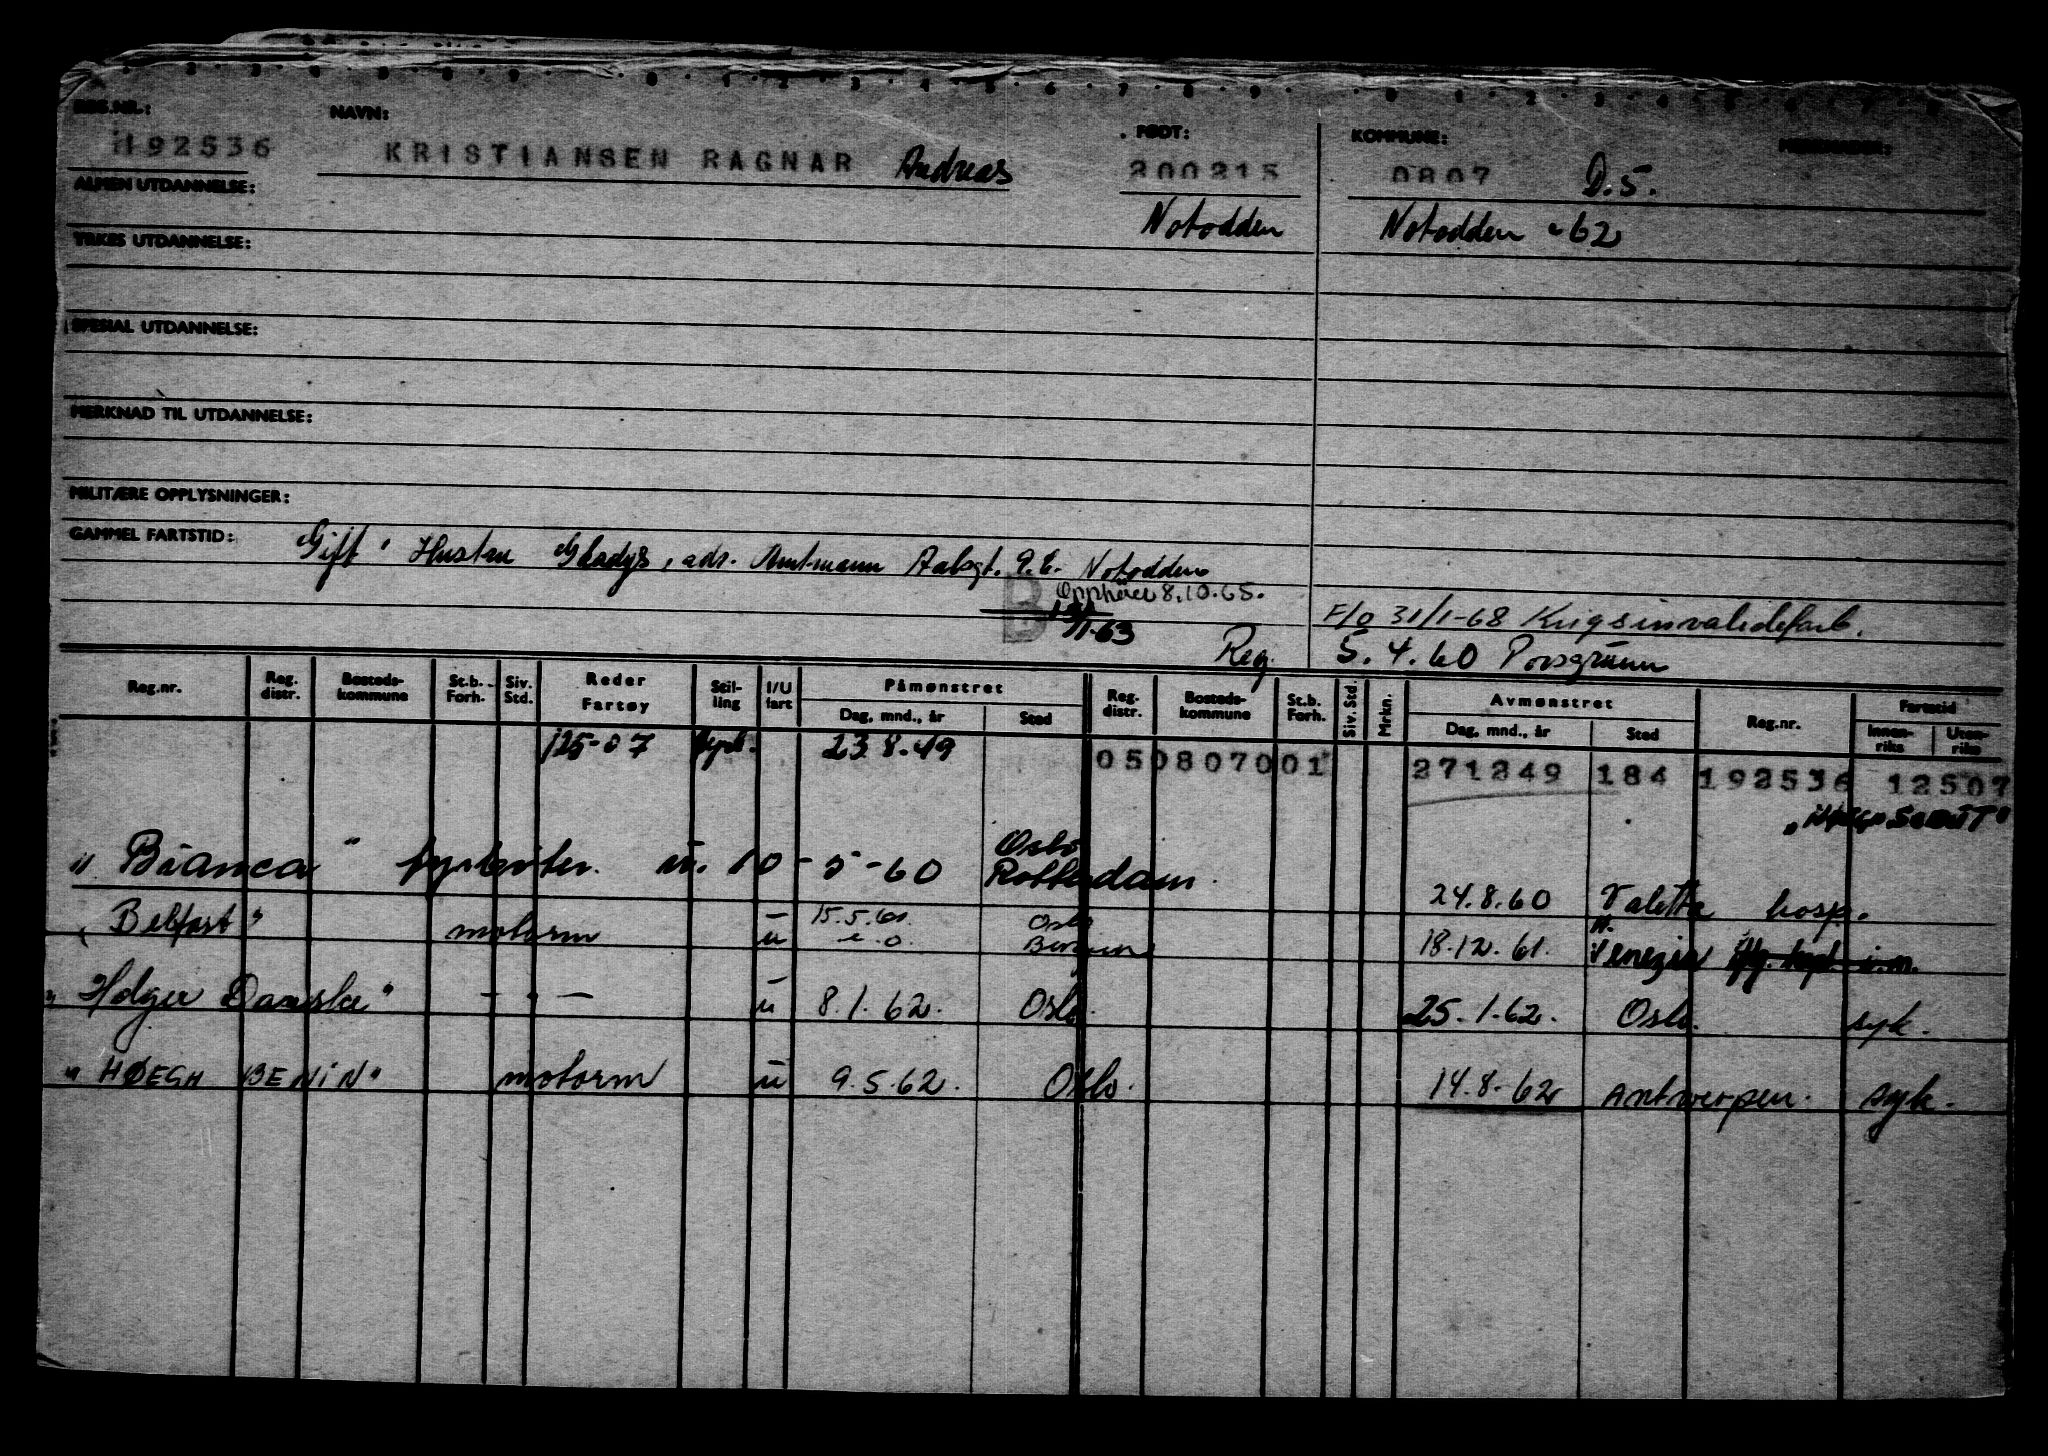 REG.NR.: NAVN: FØDT: KOMMUNE:
192536 KRISTIANSEN RAGNAR Andreas 200215 0807 D.S.
ALMEN UTDANNELSE: Notodden Notodden -62
YRKES UTDANNELSE:
SPESIAL UTDANNELSE:
MERKNAD TIL UTDANNELSE:
MILITÆRE OPPLYSNINGER:
GAMMEL FARTSTID: Gift, Hustru Gladys, adr. Amtmann Aalsgt. 9.E. Notodden
B Opphører 8.10.65.
/1-63 F/O 31/1-68 Krigsinvalidefarb.
Reg. 5.4.60 Porsgrunn
Reg.nr. Reg. distr. Bosteds-kommune St.b. Forh. Siv. Std. Reder Fartøy Stil-ling I/U fart Påmønstret Dag, mnd., år Sted Reg. distr. Bosteds-kommune St.b. Forh. Siv. Std. Mrkn. Avmønstret Dag, mnd., år Sted Reg.nr. Fartstid Innen-riks Uten-riks
125-07 fyrb. 23 8.49 050807001 271249 184 192536 12507
"Bianca" fyrbøter. u. 10-5-60 Oslo Rotterdam 24.8.60 Valetta hosp.
"Belfast" motorm u 15.5.61. Oslo Bergen 18.12.61. Venezia
"Holger Danske" - " - u 8.1.62. Oslo. 25.1.62. Oslo. syk.
"HØEGH BENIN" motorm u 9.5.62. Oslo. 14.8.62 Antwerpen. syk.